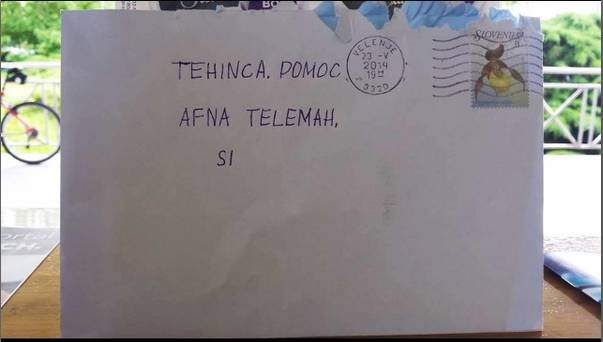 TEHINCA. POMOC
AFNA TELEMAH,
SI
VELENJE
23 -V
2014
19
3320
SLOVENIJA
B
BO
CH.